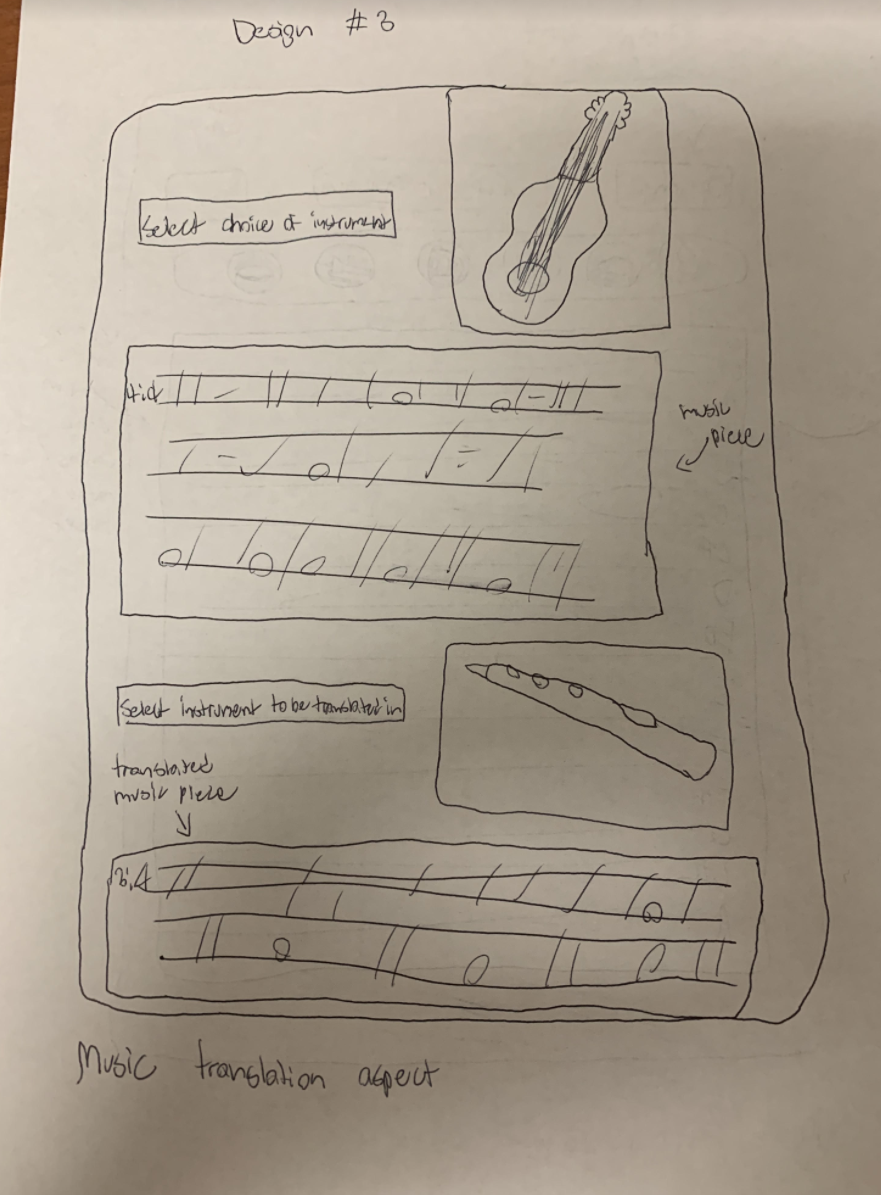 Design #3
Select choice of instrument
music
piece
Select instrument to be translated in
translated
music piece
Music translation aspect